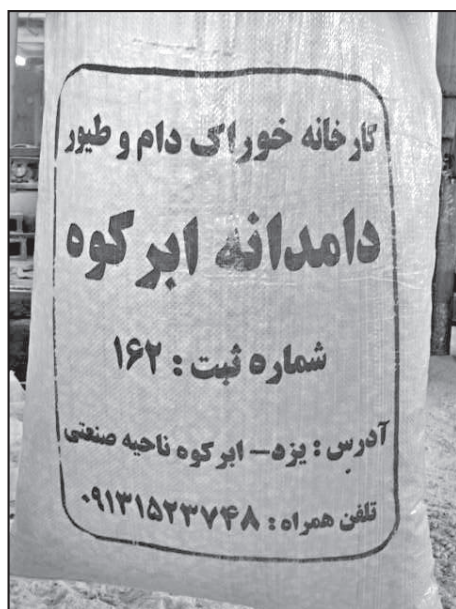 کارخانه خوراک دام و طیور
دامدانه ابرکوه
شماره ثبت : ۱۶۲
آدرس : یزد – ابرکوه ناحیه صنعتی
تلفن همراه : ۰۹۱۳۱۵۲۳۷۴۸